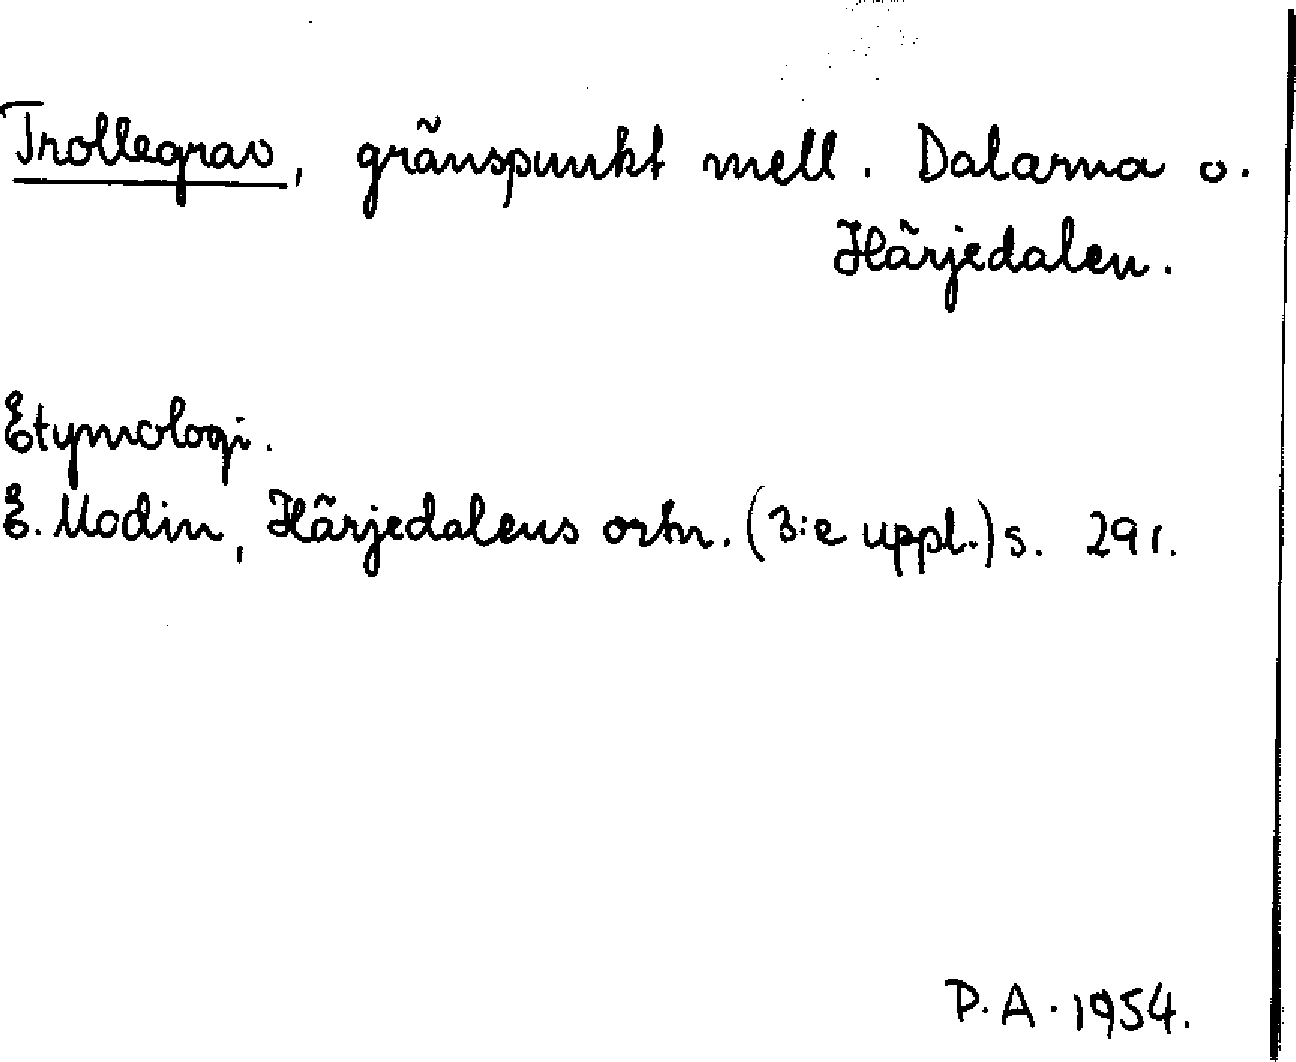 Trollegrav, gränspunkt mell. Dalarna o.
Härjedalen.
Etymologi.
E. Modin, Härjedalens ortn. (3:e uppl.) s. 291.
P.A. 1954.